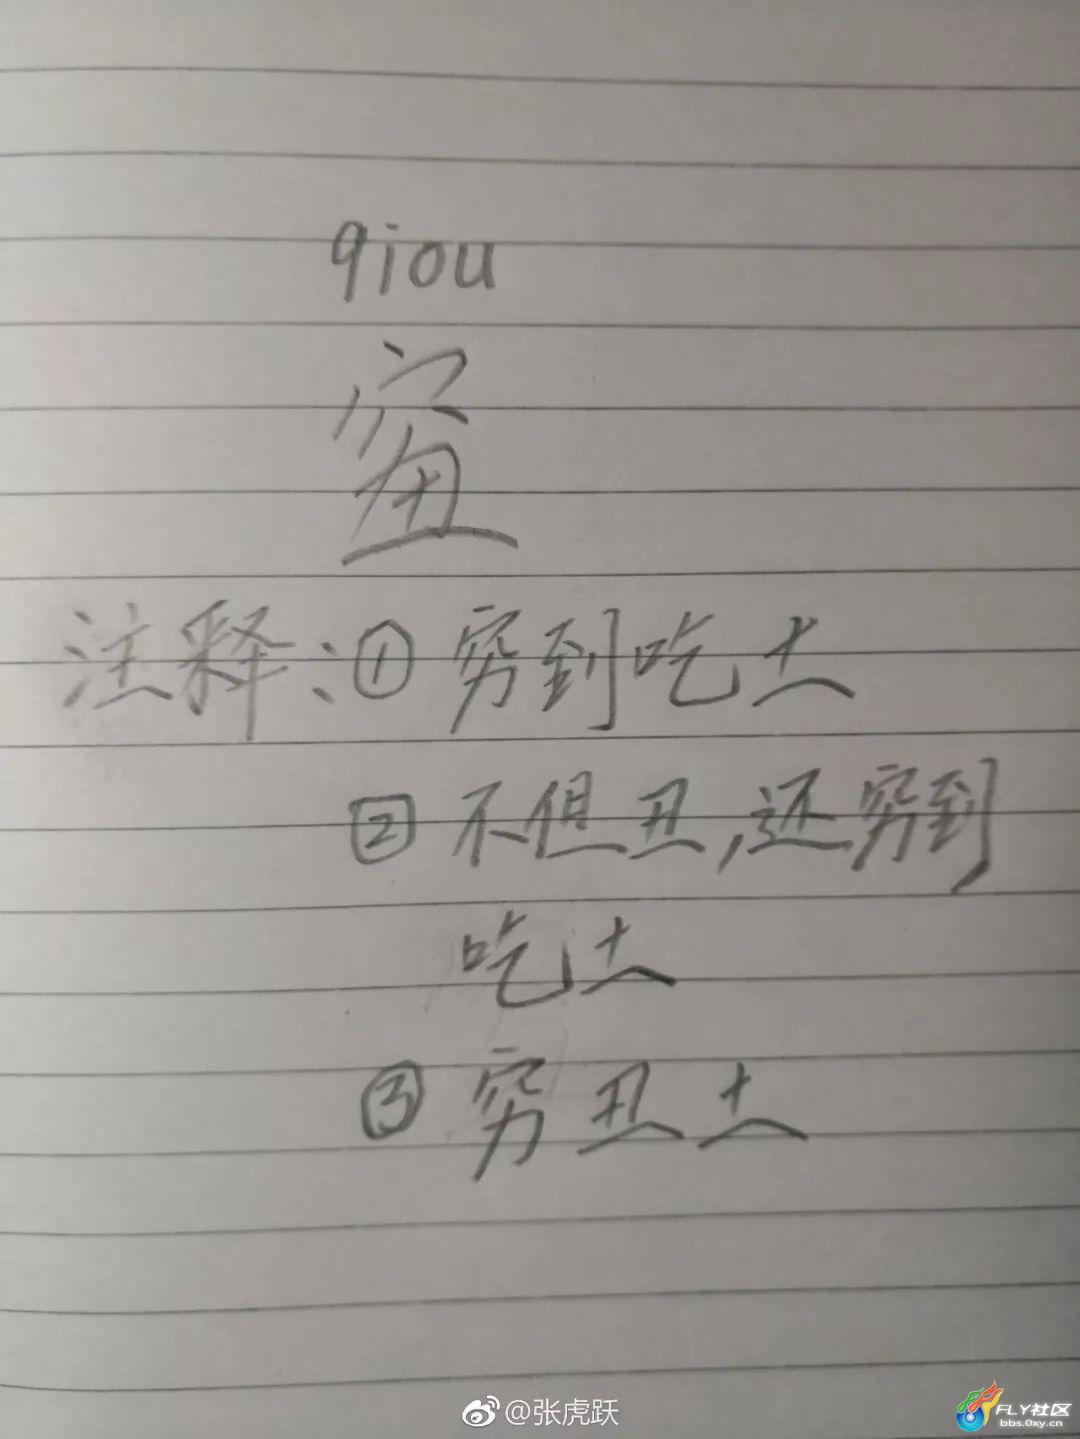 qiou
注释:①穷到吃土
②不但丑,还穷到
吃土
③穷丑土
@张虎跃
FLY社区
bbs.0xy.cn